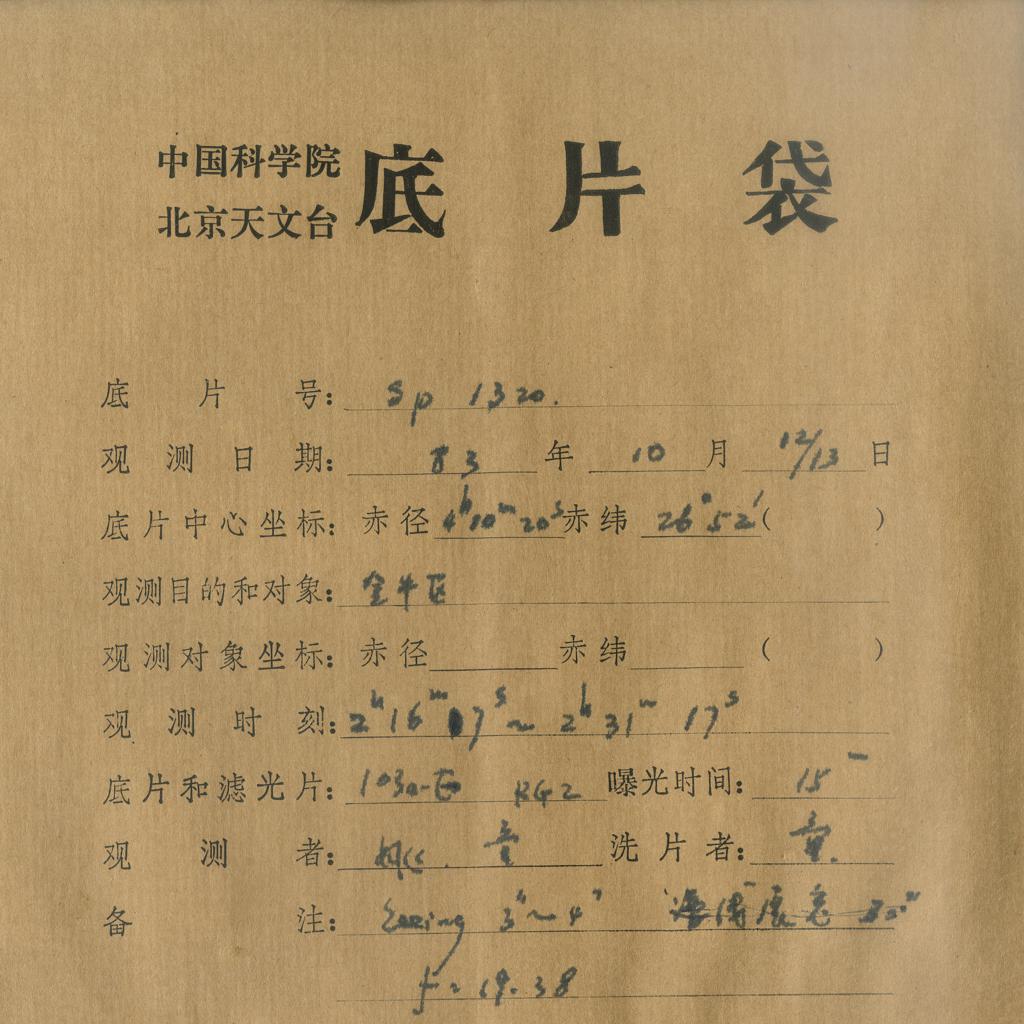 中国科学院
北京天文台
底片袋
底片号: Sp 1320.
观测日期: 83 年 10 月 12/13 日
底片中心坐标: 赤径 4h10m20s 赤纬 26°52′ ( )
观测目的和对象: 金牛区
观测对象坐标: 赤径 赤纬 ( )
观测时刻: 2h16m17s~2h31m 17s
底片和滤光片: 103a-E RG2 曝光时间: 15
观测者: 童 洗片者: 童.
备注: 3"~4"
f = 19.38